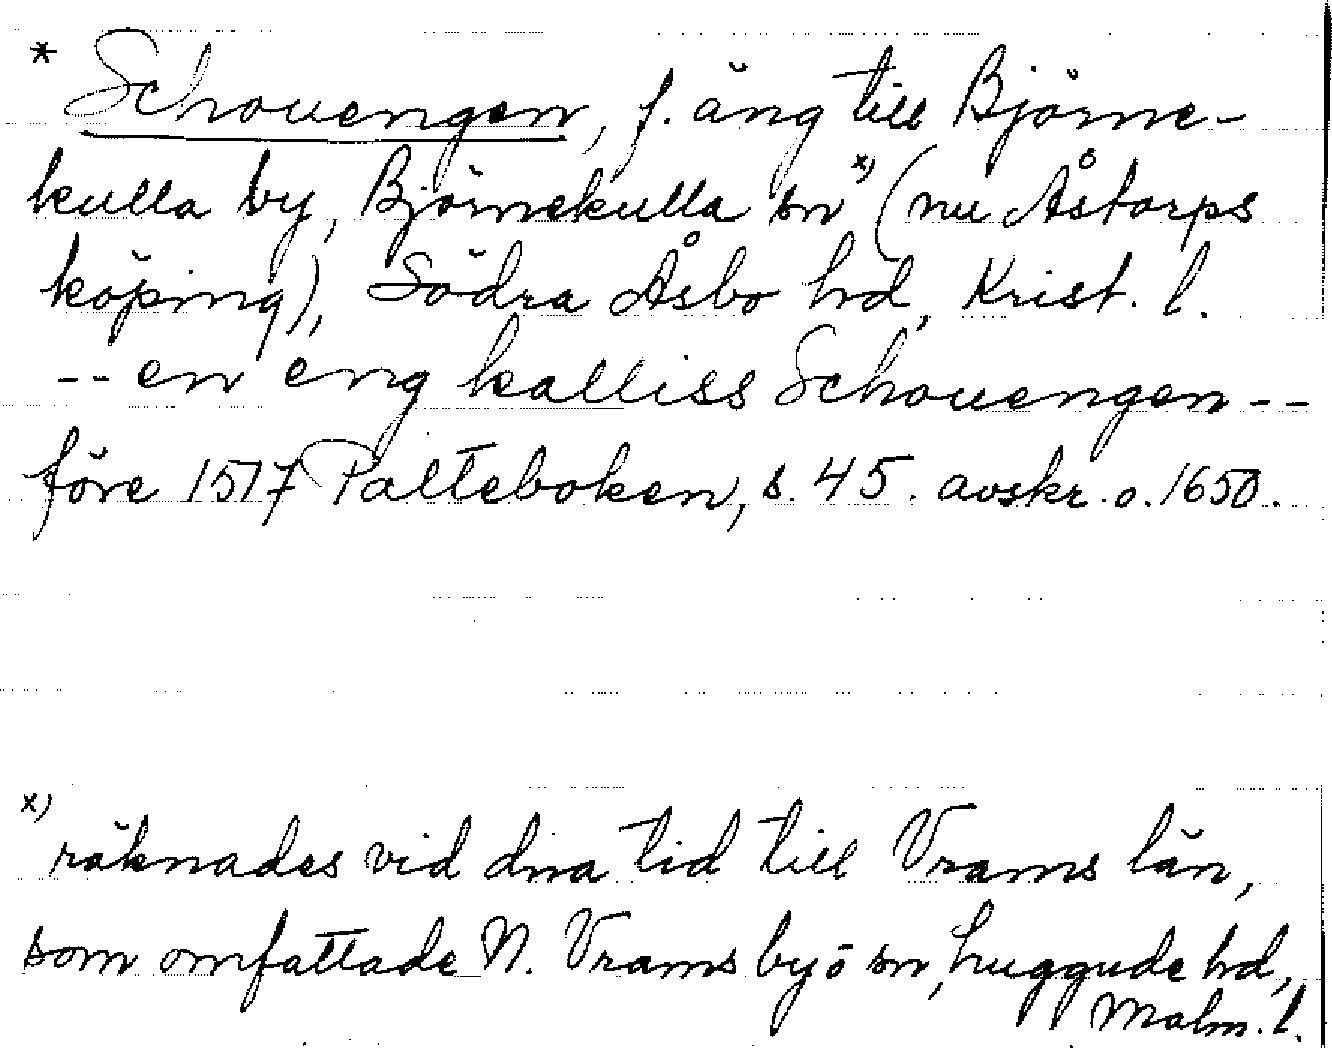 * Schouengen, f. äng till Björne-
kulla by, Björnekulla sn x) (nu Åstorps
köping), Södra Åsbo hd, Krist. l.
-- en eng kalliss Schouengen --
före 1517 Palteboken, s. 45. avskr. o. 1650.
x) räknades vid dna tid till Vrams län,
som omfattade N. Vrams by o sn, Luggude hd,
Malm. l.